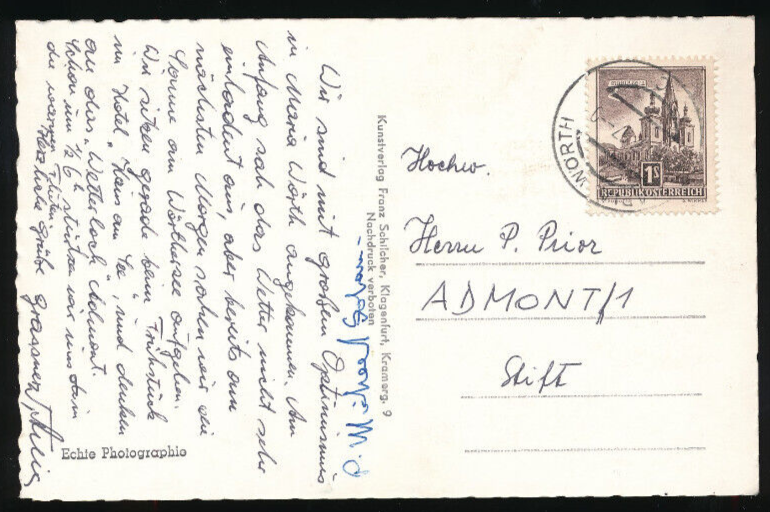 Wir sind mit großem Optimismus
in Maria Wörth angekommen. Am
Anfang sah das Wetter nicht sehr
einladend aus, aber bereits am
nächsten Morgen sahen wir die
Sonne am Wörthersee aufgehen.
Wir sitzen gerade beim Frühstück
im Hotel „Haus am See", und denken
an das „Wetterloch Admont".
Schon um ½ 6h stürzten wir uns in
die warmen Fluten.
Herzliche Grüße
P. M.
Kunstverlag Franz Schilcher, Klagenfurt, Kramerg. 9
Nachdruck verboten
Echte Photographie
WÖRTH
1S
REPUBLIK ÖSTERREICH
Hochw.
Herrn P. Prior
ADMONT/1
Stift